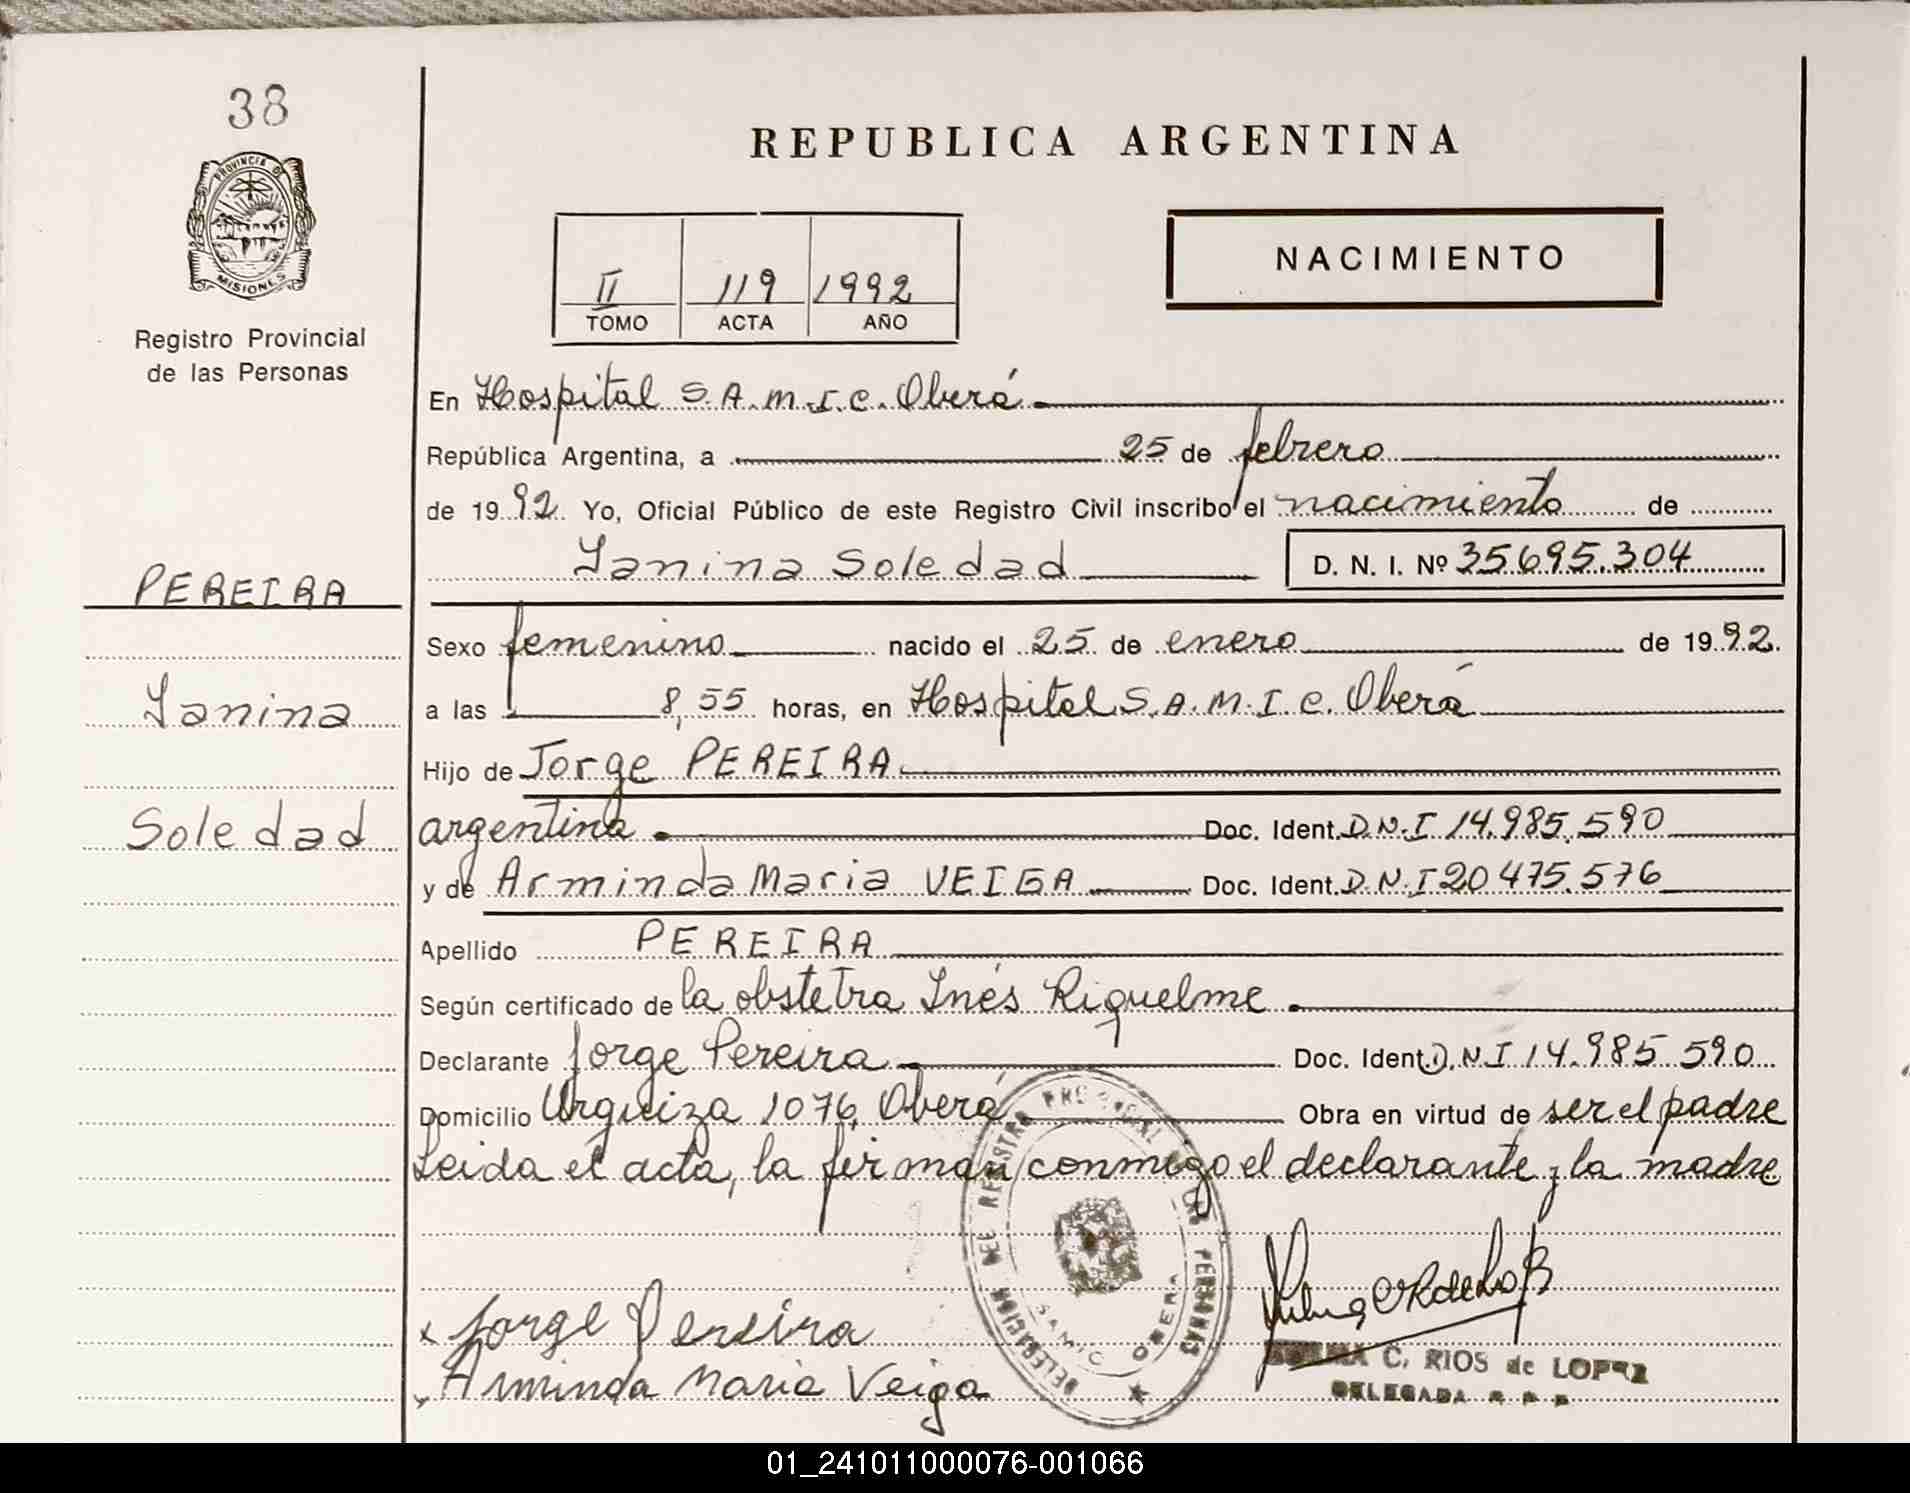 38
PROVINCIA DE
MISIONES
Registro Provincial
de las Personas
REPUBLICA ARGENTINA
II 119 1992
TOMO ACTA AÑO
NACIMIENTO
En Hospital S.A.M.I.C. Oberá
República Argentina, a 25 de febrero
de 1992. Yo, Oficial Público de este Registro Civil inscribo el nacimiento de
Yanina Soledad D. N. I. Nº 35695.304
PEREIRA
Yanina
Soledad
Sexo femenino nacido el 25 de enero de 1992.
a las 8,55 horas, en Hospital S.A.M.I.C. Oberá
Hijo de Jorge PEREIRA
argentina Doc. Ident. D.N.I 14.985.590
y de Arminda Maria VEIGA Doc. Ident. D.N.I 20475.576
Apellido PEREIRA
Según certificado de la obstetra Inés Riquelme
Declarante Jorge Pereira Doc. Ident. D.N.I 14.985 590
Domicilio Urquiza 1076, Oberá Obra en virtud de ser el padre
Leida el acta, la firman conmigo el declarante y la madre
DELEGACION DEL REGISTRO PROVINCIAL LAS PERSONAS
SAMIC OBERA
x Jorge Pereira
Arminda Maria Veiga
C. RIOS de LOPEZ
DELEGADA
01_241011000076-001066